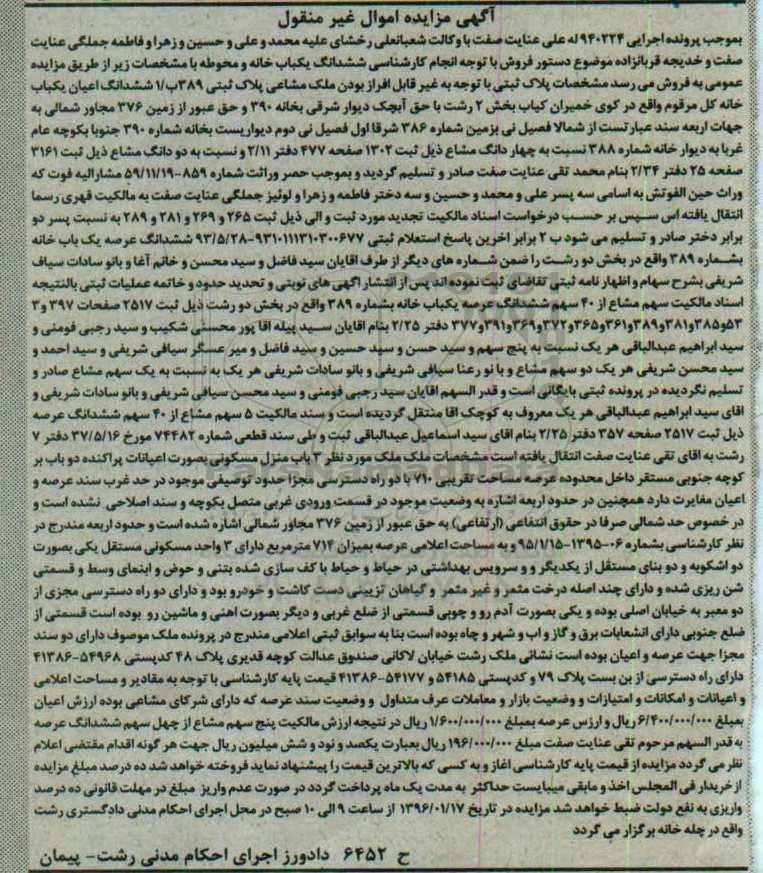 آگهی مزایده اموال غیر منقول
بموجب پرونده اجرایی ۹۴۰۲۲۴ له علی عنایت صفت با وکالت شعبانعلی رخشای علیه محمد و علی و حسین و زهرا و فاطمه جملگی عنایت
صفت و خدیجه قربانزاده موضوع دستور فروش با توجه انجام کارشناسی ششدانگ یکباب خانه و محوطه با مشخصات زیر از طریق مزایده
عمومی به فروش می رسد مشخصات پلاک ثبتی با توجه به غیر قابل افراز بودن ملک مشاعی پلاک ثبتی ۳۸۹ب/۱ ششدانگ اعیان یکباب
خانه کل مرقوم واقع در کوی خمیران کیاب بخش ۲ رشت با حق آبچک دیوار شرقی بخانه ۳۹۰ و حق عبور از زمین ۳۷۶ مجاور شمالی به
جهات اربعه سند عبارتست از شمالا فصیل نی بزمین شماره ۳۸۶ شرقا اول فصیل نی دوم دیواریست بخانه شماره ۳۹۰ جنوبا بکوچه عام
غربا به دیوار خانه شماره ۳۸۸ نسبت به چهار دانگ مشاع ذیل ثبت ۱۳۰۲ صفحه ۴۷۷ دفتر ۲/۱۱ و نسبت به دو دانگ مشاع ذیل ثبت ۳۱۶۱
صفحه ۲۵ دفتر ۲/۳۴ بنام محمد تقی عنایت صفت صادر و تسلیم گردید و بموجب حصر وراثت شماره ۸۵۹-۵۹/۱۱/۱۹ مشارالیه فوت که
وراث حین الفوتش به اسامی سه پسر علی و محمد و حسین و سه دختر فاطمه و زهرا و لوئیز جملگی عنایت صفت به مالکیت قهری رسما
انتقال یافته اس سپس بر حسب درخواست اسناد مالکیت تجدید مورد ثبت و الی ذیل ثبت ۲۶۵ و ۲۶۹ و ۲۸۱ و ۲۸۹ به نسبت پسر دو
برابر دختر صادر و تسلیم می شود ب ۲ برابر اخرین پاسخ استعلام ثبتی ۹۳۱۰۱۱۱۳۱۰۳۰۰۶۷۷-۹۳/۵/۲۸ ششدانگ عرصه یک باب خانه
بشماره ۳۸۹ واقع در بخش دو رشت را ضمن شماره های دیگر از طرف اقایان سید فاضل و سید محسن و خانم آغا و بانو سادات سیاف
شریفی بشرح سهام و اظهار نامه ثبتی تقاضای ثبت نموده اند پس از انتشار اگهی های نوبتی و تحدید حدود و خاتمه عملیات ثبتی بالنتیجه
اسناد مالکیت سهم مشاع از ۴۰ سهم ششدانگ عرصه یکباب خانه بشماره ۳۸۹ واقع در بخش دو رشت ذیل ثبت ۲۵۱۷ صفحات ۳۹۷ و۳
۵۳و۳۸۵و۳۸۱و۳۸۹و۳۶۱و۳۶۵و۳۷۲و۳۶۹و۳۹۱و۳۷۷ دفتر ۲/۲۵ بنام اقایان سید پیله اقا پور محسنی شکیب و سید رجبی فومنی و
سید ابراهیم عبدالباقی هر یک نسبت به پنج سهم و سید حسن و سید حسین و سید فاضل و میر عسگر سیافی شریفی و سید احمد و
سید محسن شریفی هر یک دو سهم مشاع و با نو رعنا سیافی شریفی و بانو سادات شریفی هر یک به نسبت به یک سهم مشاع صادر و
تسلیم نگردیده در پرونده ثبتی بایگانی است و قدر السهم اقایان سید رجبی فومنی و سید محسن سیافی شریفی و بانو سادات شریفی و
اقای سید ابراهیم عبدالباقی هر یک معروف به کوچک اقا منتقل گردیده است و سند مالکیت ۵ سهم مشاع از ۴۰ سهم ششدانگ عرصه
ذیل ثبت ۲۵۱۷ صفحه ۳۵۷ دفتر ۲/۲۵ بنام اقای سید اسماعیل عبدالباقی ثبت و طی سند قطعی شماره ۷۴۴۸۲ مورخ ۳۷/۵/۱۶ دفتر ۷
رشت به اقای تقی عنایت صفت انتقال یافته است مشخصات ملک ملک مورد نظر ۳ باب منزل مسکونی بصورت اعیانات پراکنده دو باب بر
کوچه جنوبی مستقر داخل محدوده عرصه مساحت تقریبی ۷۱۰ با دو راه دسترسی مجزا حدود توصیفی موجود در حد غرب سند عرصه و
اعیان مغایرت دارد همچنین در حدود اربعه اشاره به وضعیت موجود در قسمت ورودی غربی متصل بکوچه و سند اصلاحی نشده است و
در خصوص حد شمالی صرفا در حقوق انتفاعی (ارتفاعی) به حق عبور از زمین ۳۷۶ مجاور شمالی اشاره شده است و حدود اربعه مندرج در
نظر کارشناسی بشماره ۰۶-۱۳۹۵-۹۵/۱/۱۵ و به مساحت اعلامی عرصه بمیزان ۷۱۴ مترمربع دارای ۳ واحد مسکونی مستقل یکی بصورت
دو اشکوبه و دو بنای مستقل از یکدیگر و و سرویس بهداشتی در حیاط و حیاط با کف سازی شده بتنی و حوض و ابنمای وسط و قسمتی
شن ریزی شده و دارای چند اصله درخت مثمر و غیر مثمر و گیاهان تزیینی دست کاشت و خودرو بود و دارای دو راه دسترسی مجزی از
دو معبر به خیابان اصلی بوده و یکی بصورت آدم رو و چوبی قسمتی از ضلع غربی و دیگر بصورت اهنی و ماشین رو بوده است قسمتی از
ضلع جنوبی دارای انشعابات برق و گاز و اب و شهر و چاه بوده است بنا به سوابق ثبتی اعلامی مندرج در پرونده ملک موصوف دارای دو سند
مجزا جهت عرصه و اعیان بوده است نشانی ملک رشت خیابان لاکانی صندوق عدالت کوچه قدیری پلاک ۴۸ کدپستی ۵۴۹۶۸-۴۱۳۸۶
دارای راه دسترسی از بن بست پلاک ۷۹ و کدپستی ۵۴۱۸۵ و ۵۴۱۷۷-۴۱۳۸۶ قیمت پایه کارشناسی با توجه به مقادیر و مساحت اعلامی
و اعیانات و امکانات و امتیازات و وضعیت بازار و معاملات عرف متداول و وضعیت سند عرصه که دارای شرکای مشاعی بوده ارزش اعیان
بمبلغ ۶/۴۰۰/۰۰۰/۰۰۰ ریال و ارزس عرصه بمبلغ ۱/۶۰۰/۰۰۰/۰۰۰ ریال در نتیجه ارزش مالکیت پنج سهم مشاع از چهل سهم ششدانگ عرصه
به قدر السهم مرحوم تقی عنایت صفت مبلغ ۱۹۶/۰۰۰/۰۰۰ ریال بعبارت یکصد و نود و شش میلیون ریال جهت هر گونه اقدام مقتضی اعلام
نظر می گردد مزایده از قیمت پایه کارشناسی اغاز و به کسی که بالاترین قیمت را پیشنهاد نماید فروخته خواهد شد ده درصد مبلغ مزایده
از خریدار فی المجلس اخذ و مابقی میبایست حداکثر به مدت یک ماه پرداخت گردد در صورت عدم واریز مبلغ در مهلت قانونی ده درصد
واریزی به نفع دولت ضبط خواهد شد مزایده در تاریخ ۱۳۹۶/۰۱/۱۷ از ساعت ۹ الی ۱۰ صبح در محل اجرای احکام مدنی دادگستری رشت
واقع در چله خانه برگزار می گردد
ح ۶۴۵۲ دادورز اجرای احکام مدنی رشت- پیمان